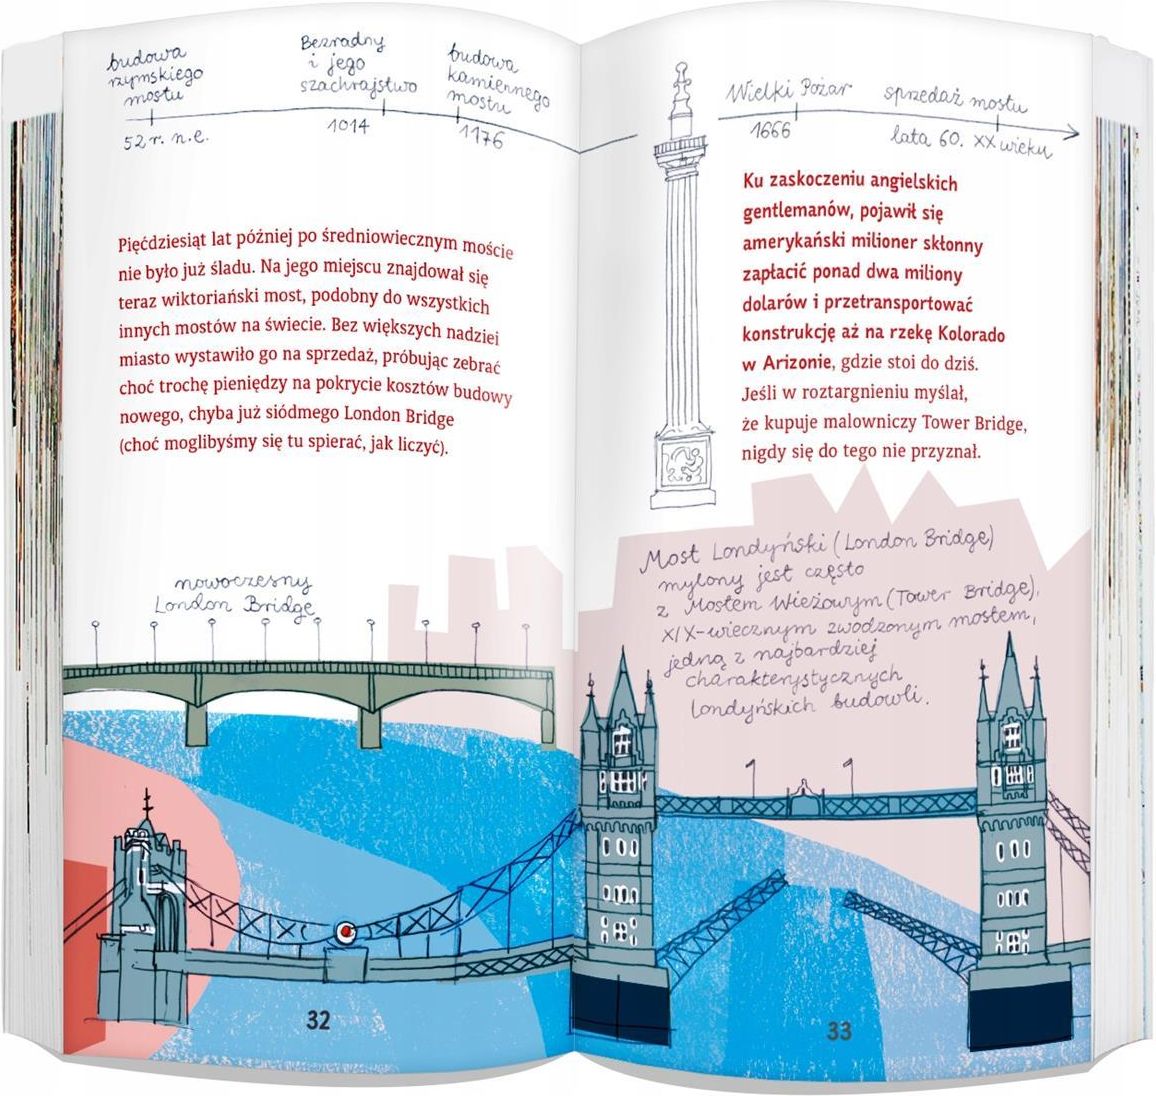 budowa
rzymskiego
mostu
52 r. n.e.
Bezradny
i jego
szachrajstwo
1014
budowa
kamiennego
mostu
1176
Pięćdziesiąt lat później po średniowiecznym moście
nie było już śladu. Na jego miejscu znajdował się
teraz wiktoriański most, podobny do wszystkich
innych mostów na świecie. Bez większych nadziei
miasto wystawiło go na sprzedaż, próbując zebrać
choć trochę pieniędzy na pokrycie kosztów budowy
nowego, chyba już siódmego London Bridge
(choć moglibyśmy się tu spierać, jak liczyć).
nowoczesny
London Bridge
32
Wielki Pożar
1666
sprzedaż mostu
lata 60. XX wieku
Ku zaskoczeniu angielskich
gentlemanów, pojawił się
amerykański milioner skłonny
zapłacić ponad dwa miliony
dolarów i przetransportować
konstrukcję aż na rzekę Kolorado
w Arizonie, gdzie stoi do dziś.
Jeśli w roztargnieniu myślał,
że kupuje malowniczy Tower Bridge,
nigdy się do tego nie przyznał.
Most Londyński (London Bridge)
mylony jest często
z Mostem Wieżowym (Tower Bridge),
XIX-wiecznym zwodzonym mostem,
jedną z najbardziej
charakterystycznych
londyńskich budowli.
33